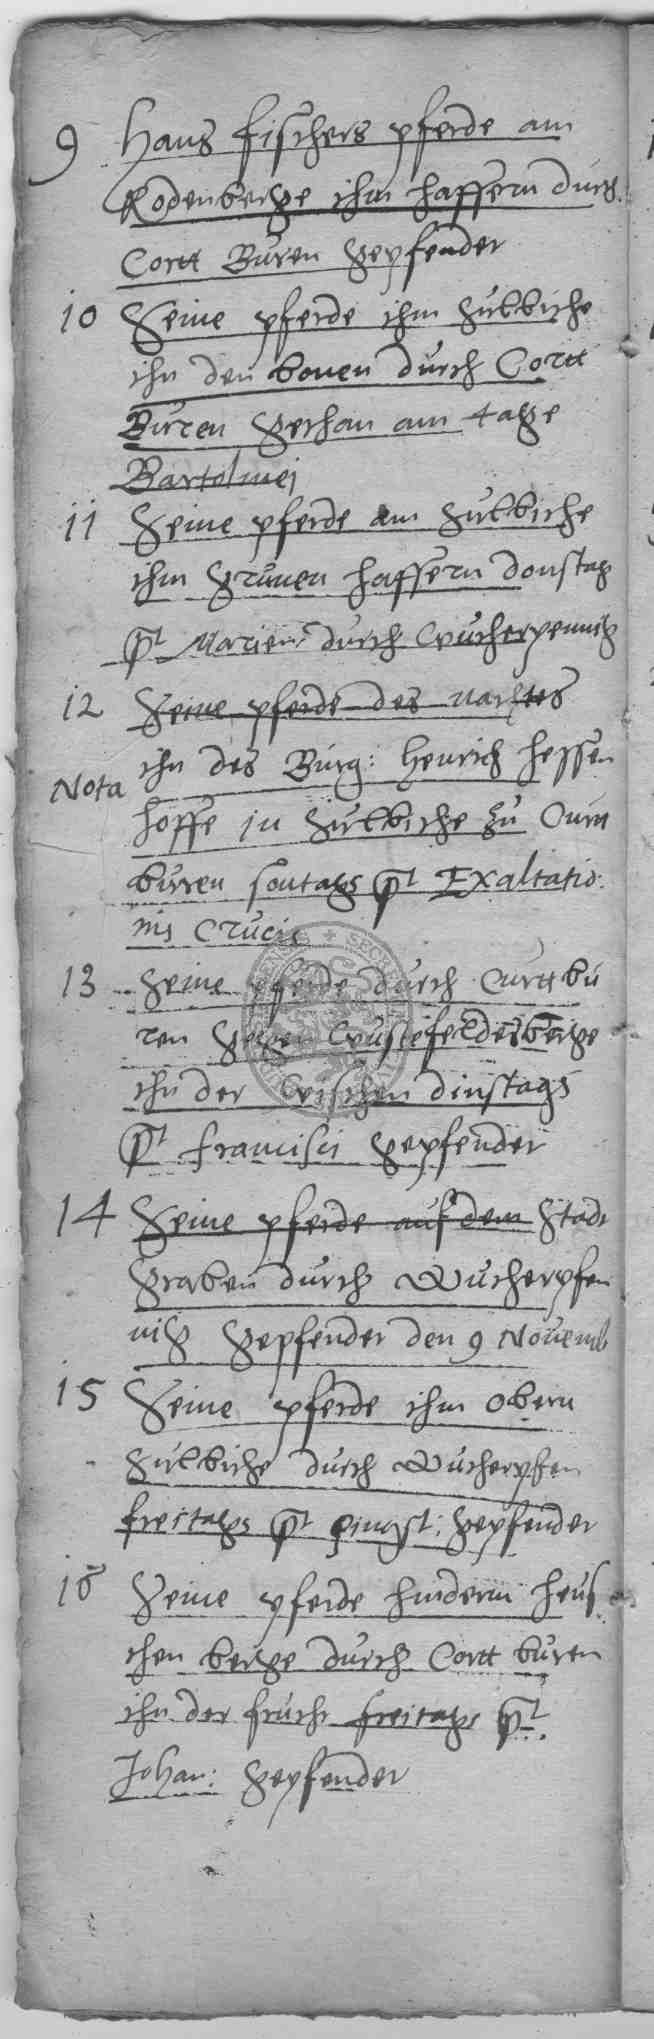 9 Hans Fischers pferde am
Rodenberge ihm haffern durch
Cortt Buren gepfender
10 Seine pferde ihm Sulbiche
ihn den bonen durch Cortt
Buren geschan am tage
Bartolmej
11 Seine pferde am Sulbiche
ihm grunen haffern donstag
pt Marien durch Wucherpennig
12 Seine pferde des nachtes
ihn des Burg: Henrich Hessen
Nota
hoffe in Sulbiche zu Curtt
buren sontags pt Exaltatio:
nis Crucis
13 Seine pferde durch Curtt bu
ren gegen Wustefeldesberge
ihn der wischen dinstags
pt Francisci gepfender
14 Seine pferde auf dem Stadt
graben durch Wucherpfen
nig gepfender den 9 Novemb
15 Seine pferde ihm obern
Sulbiche durch Wucherpfen
freitags pt pingst: gepfender
16 Seine pferde hinderm heus
chen berge durch Cortt buren
ihn der frucht freitags pt
Johan: gepfender